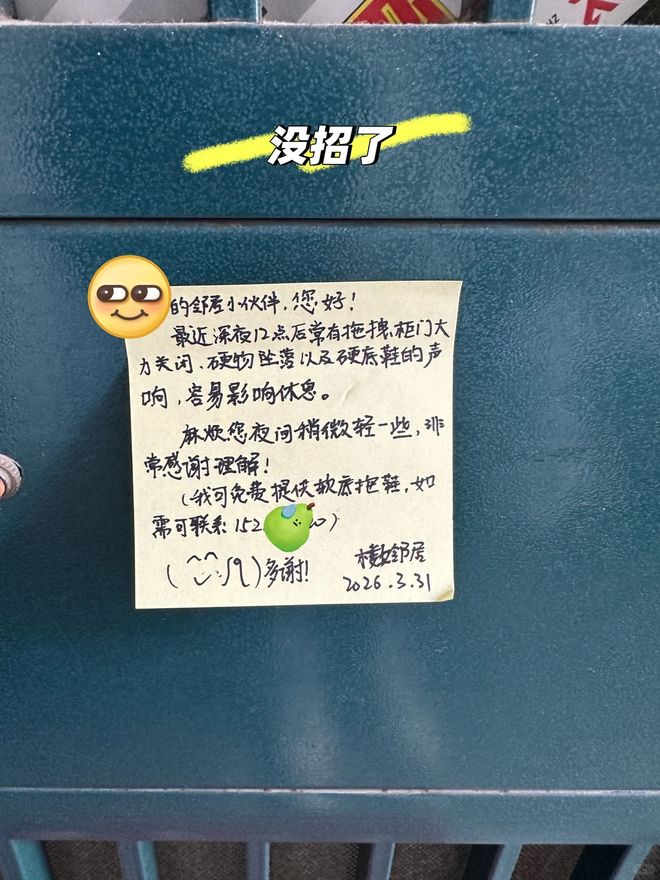 没招了
的邻居小伙伴，您好！
最近深夜12点后常有拖拽、柜门大
力关闭、硬物坠落以及硬底鞋的声
响，容易影响休息。
麻烦您夜间稍微轻一些，非
常感谢理解！
（我可免费提供软底拖鞋，如
需可联系152
多谢！
楼邻居
2026.3.31